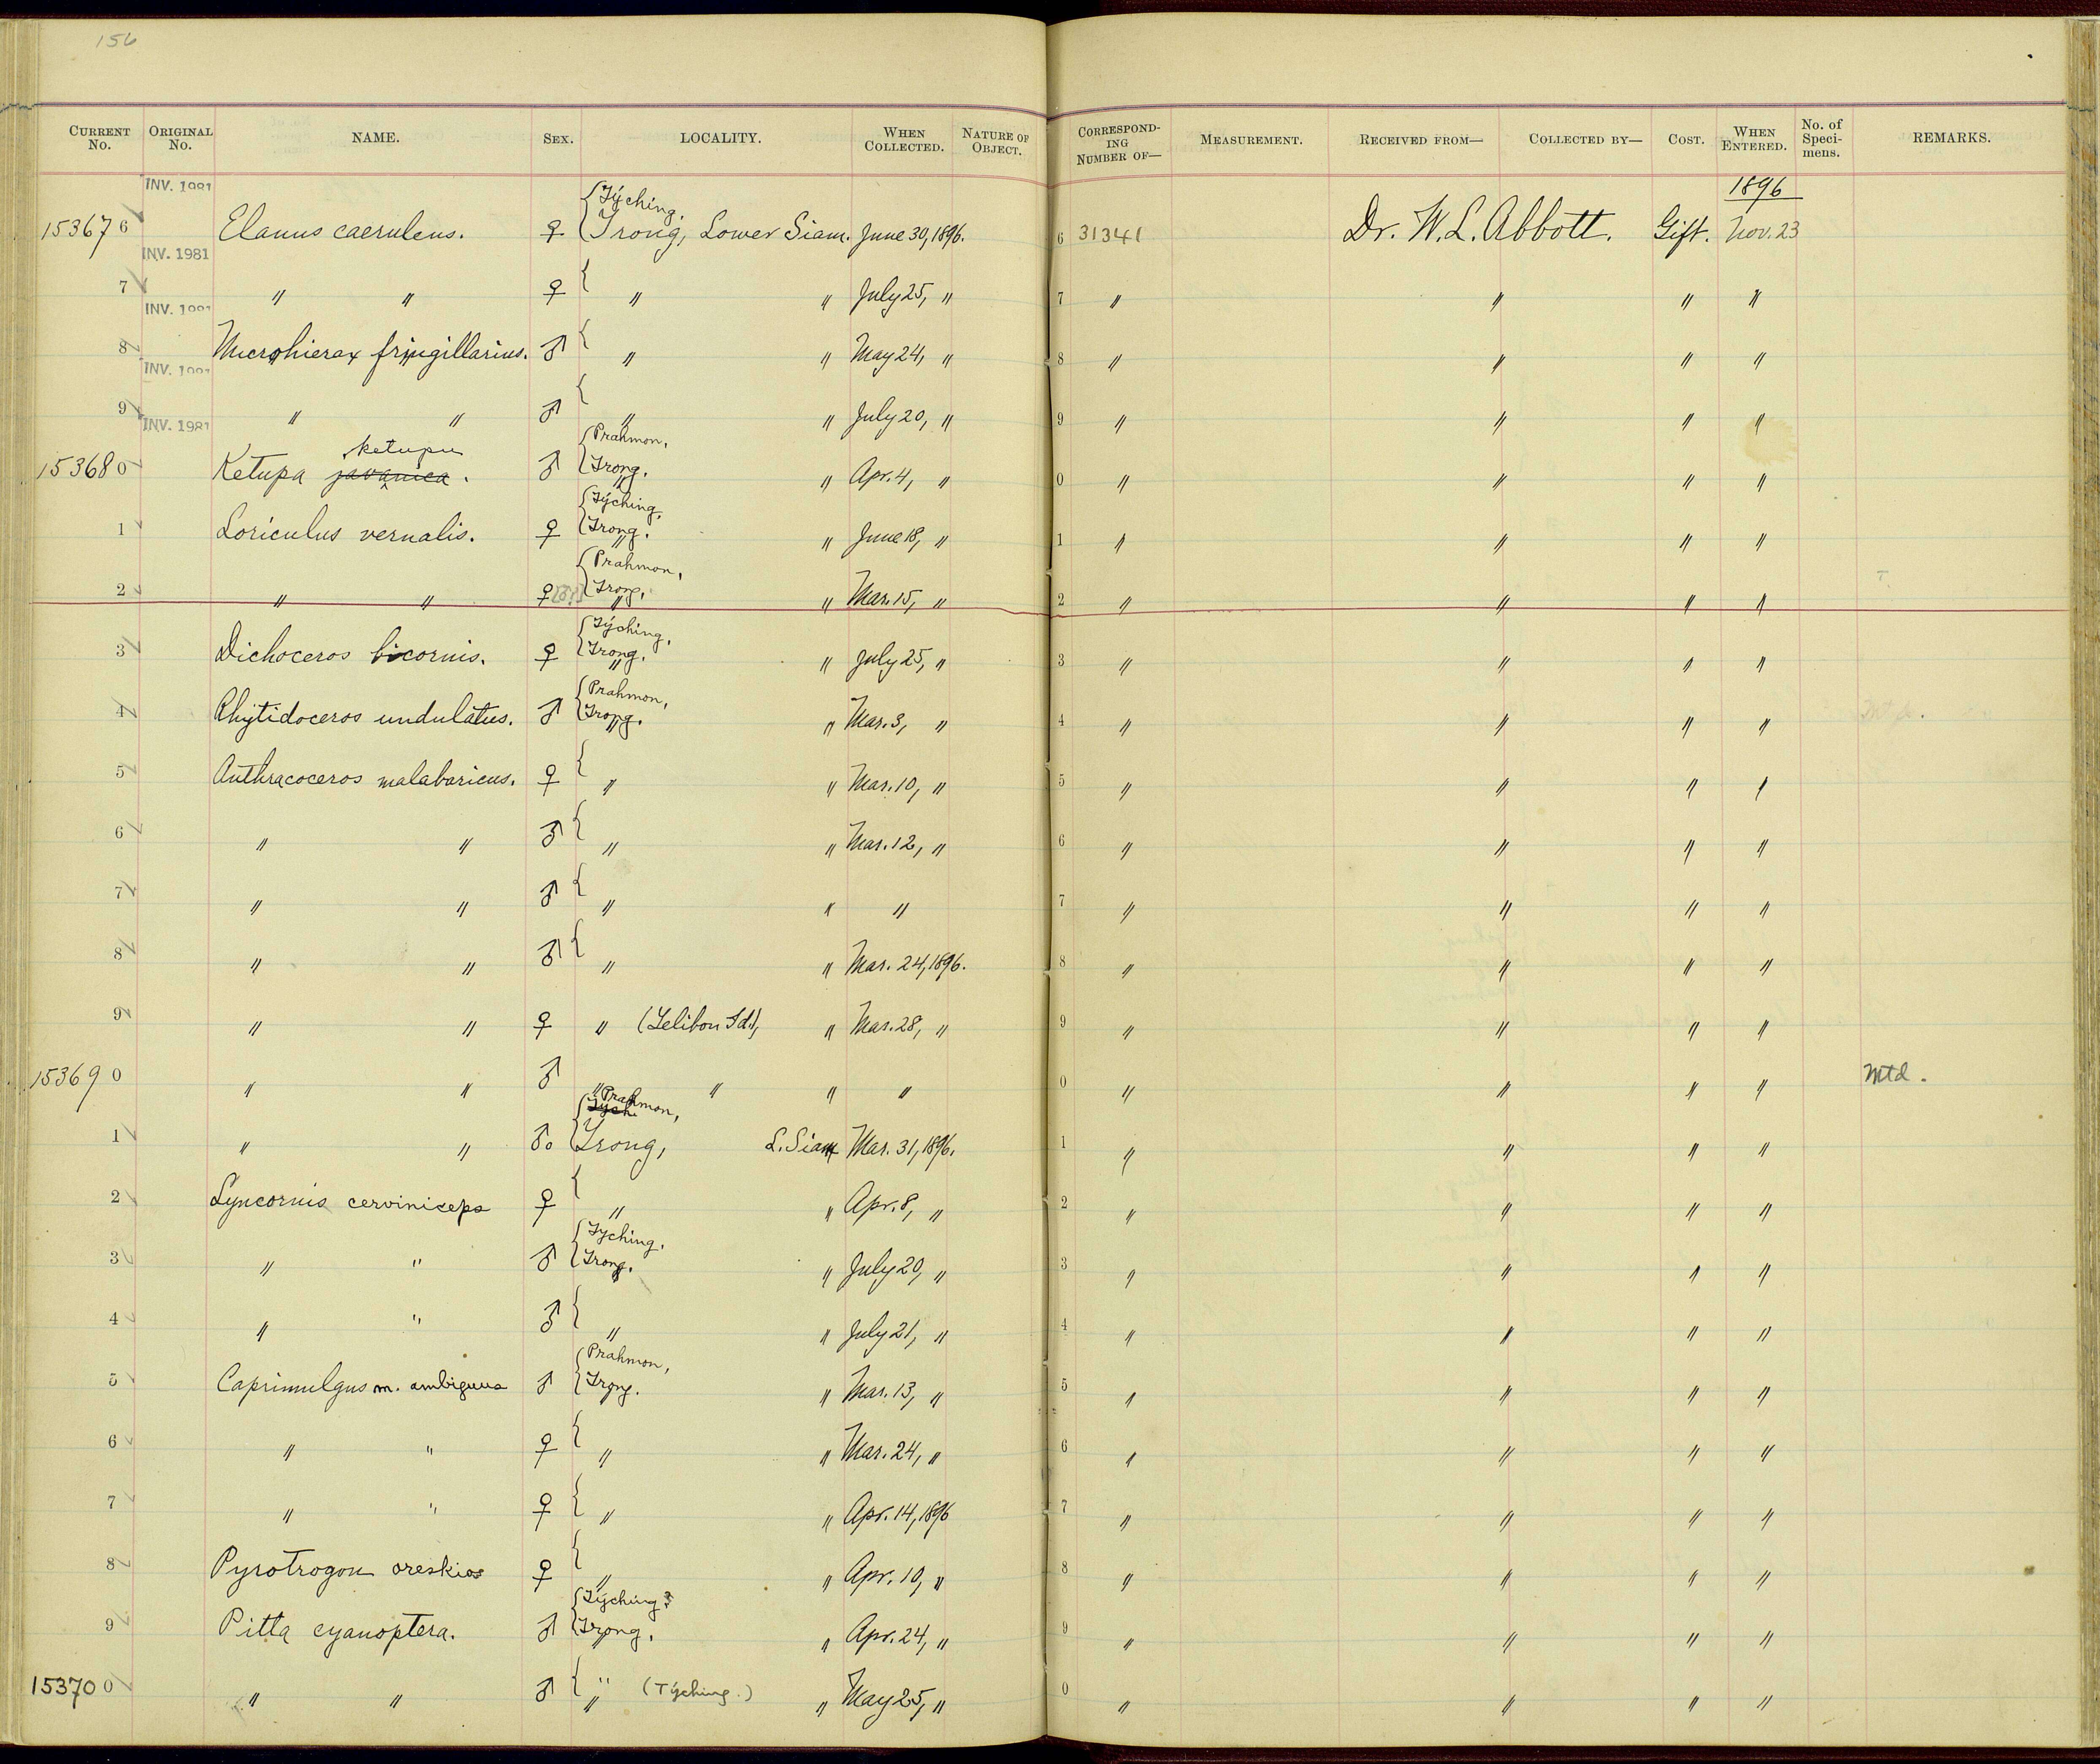 156
CURRENT No. ORIGINAL No. NAME. SEX. LOCALITY. WHEN COLLECTED. NATURE OF OBJECT. CORRESPONDING NUMBER OF— MEASUREMENT. RECEIVED FROM— COLLECTED BY— COST. WHEN ENTERED. No. of Specimens. REMARKS.
INV. 1981 1896
{Týching,
153676 Elanus caeruleus. ♀ {Trong, Lower Siam. June 30, 1896. 6 31341 Dr. W. L. Abbott. Gift. Nov. 23
INV. 1981
7 " " ♀ { " " July 25, " 7 " " " "
INV. 1981
8 Microhierax fringillarius. ♂ { " " May 24, " 8 " " " "
INV. 1981
9 " " ♂ { " " July 20, " 9 " " " "
INV. 1981
ketupu {Prahmon,
153680 Ketupa javanica. ♂ {Trong. " " Apr. 4, " 0 " " " "
{Týching,
1 Loriculus vernalis. ♀ {Trong. " " June 18, " 1 " " " "
{Prahmon,
2 " " ♀ {Trong. " " Mar. 15, " 2 " " " " T.
{Týching,
3 Dichoceros bicornis. ♀ {Trong. " " July 25, " 3 " " " "
{Prahmon,
4 Rhytidoceros undulatus. ♂ {Trong. " " Mar. 3, " 4 " " " "
5 Anthracoceros malabaricus. ♀ { " " Mar. 10, " 5 " " " "
6 " " ♂ { " " Mar. 12, " 6 " " " "
7 " " ♂ { " " " 7 " " " "
8 " " ♂ { " " Mar. 24, 1896. 8 " " " "
9 " " ♀ " (Telibon Id.), " Mar. 28, " 9 " " " "
153690 " " ♂ " " " " 0 " " " " Mtd.
{Tých Prahmon,
1 " " ♂o {Trong, L. Siam Mar. 31, 1896. 1 " " " "
2 Lyncornis cerviniceps ♀ { " " Apr. 8, " 2 " " " "
{Tyching.
3 " " ♂ {Trong. " " July 20, " 3 " " " "
4 " " ♂ { " " July 21, " 4 " " " "
{Prahmon,
5 Caprimulgus m. ambiguus ♂ {Trong. " " Mar. 13, " 5 " " " "
6 " " ♀ { " " Mar. 24, " 6 " " " "
7 " " ♀ { " " Apr. 14, 1896 7 " " " "
8 Pyrotrogon oreskios ♀ { " " Apr. 10, " 8 " " " "
{Týching?
9 Pitta cyanoptera. ♂ {Trong. " " Apr. 24, " 9 " " " "
153700 " " ♂ { " " (Týching.) " May 25, " 0 " " " "